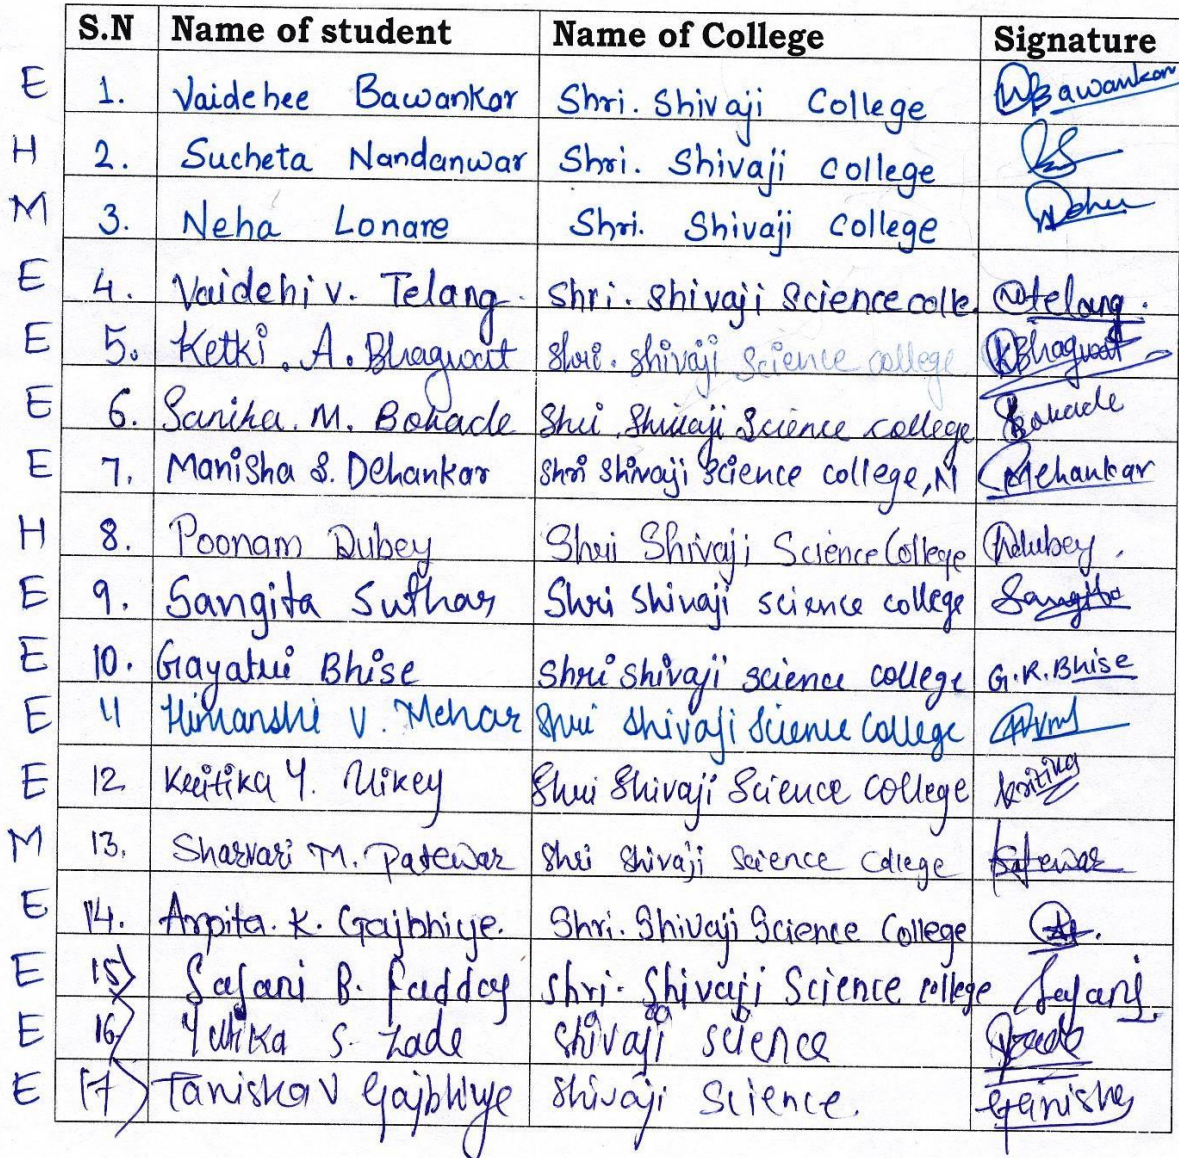 S.N Name of student Name of College Signature
E 1. Vaidehee Bawankar Shri. Shivaji College Bawankar
H 2. Sucheta Nandanwar Shri. Shivaji College
M 3. Neha Lonare Shri. Shivaji College
E 4. Vaidehi v. Telang. Shri. Shivaji Science colle. telang.
E 5. Ketki. A. Bhagwat Shri. Shivaji Science college KBhagwat
E 6. Sanika. M. Bokade Shri. Shivaji Science college Bokade
E 7. Manisha S. Dehankar Shri Shivaji Science college, N Dehankar
H 8. Poonam Dubey Shri Shivaji Science College Dubey.
E 9. Sangita Suthar Shri Shivaji science college Sangita
E 10. Gayatri Bhise Shri Shivaji science college G.R.Bhise
E 11 Himanshi V. Mehar Shri Shivaji Science College
E 12 Kritika Y. Uikey Shri Shivaji Science College kritika
M 13. Sharvari M. Patewar Shri Shivaji Science College Patewar
E 14. Arpita. K. Gajbhiye. Shri. Shivaji Science College
E 15) Sajani B. Shri. Shivaji Science college Sajani
E 16) Yutika S. Zade Shivaji science Zade
E 17) Taniska V Gajbhiye Shivaji Science.